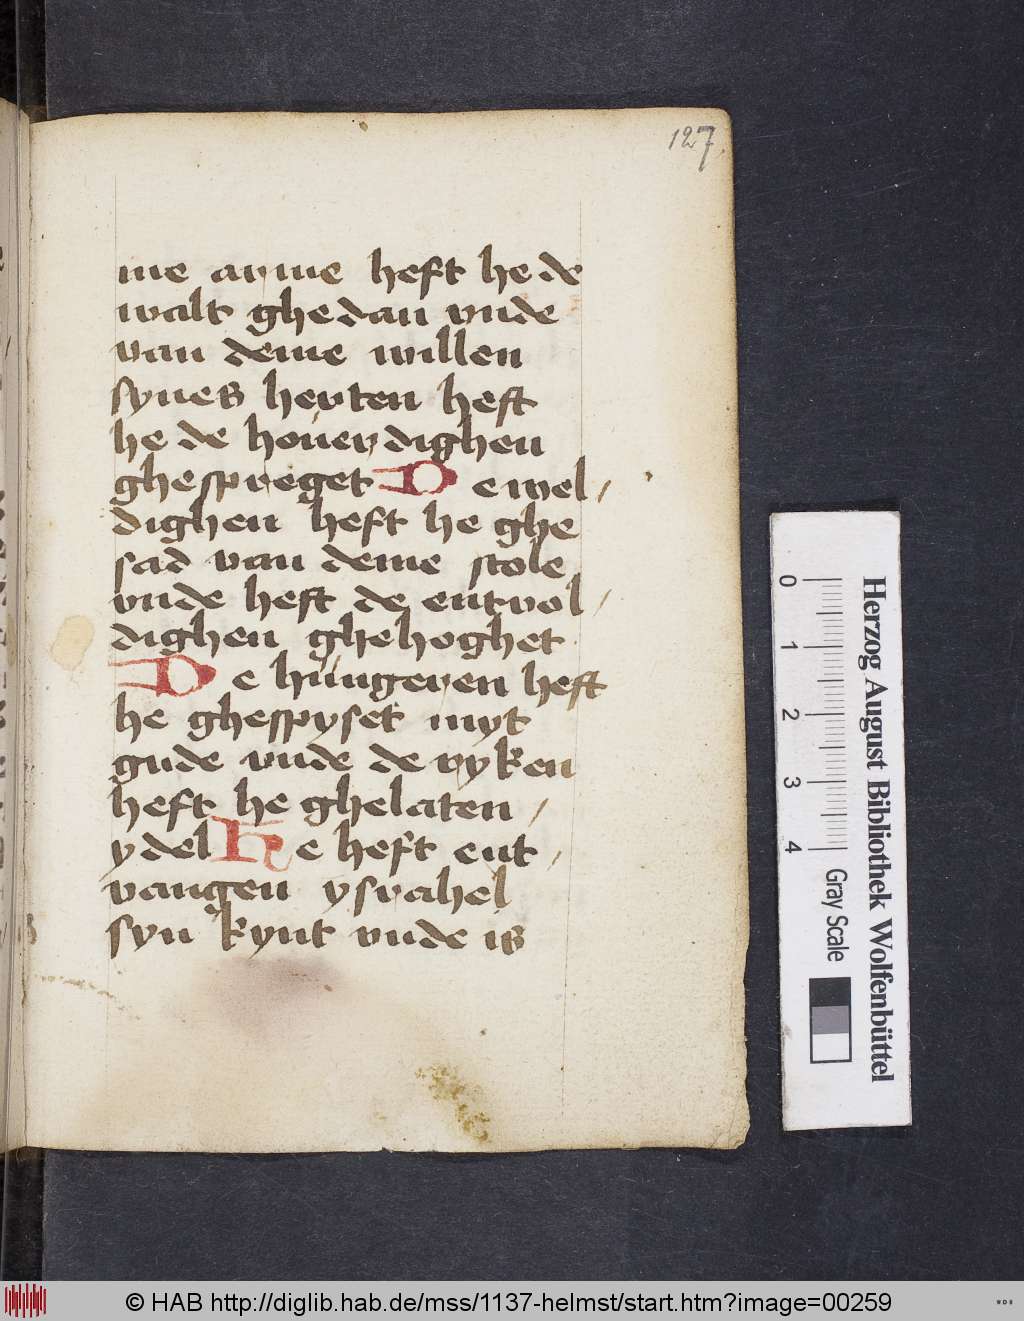 127.
me arme heft he de
walt ghedan vnde
van deme willen
synes herten heft
he de houerdighen
ghespreget De wel/
dighen heft he ghe
sad van deme stole
vnde heft de entvol/
dighen ghehoghet
De hungeren heft
he ghespyset myt
gude vnde de ryken
heft he ghelaten/
ydel He heft ent/
vangen ysrahel
syn kynt vnde is
Herzog August Bibliothek Wolfenbüttel
0 1 2 3 4
Gray Scale
© HAB http://diglib.hab.de/mss/1137-helmst/start.htm?image=00259